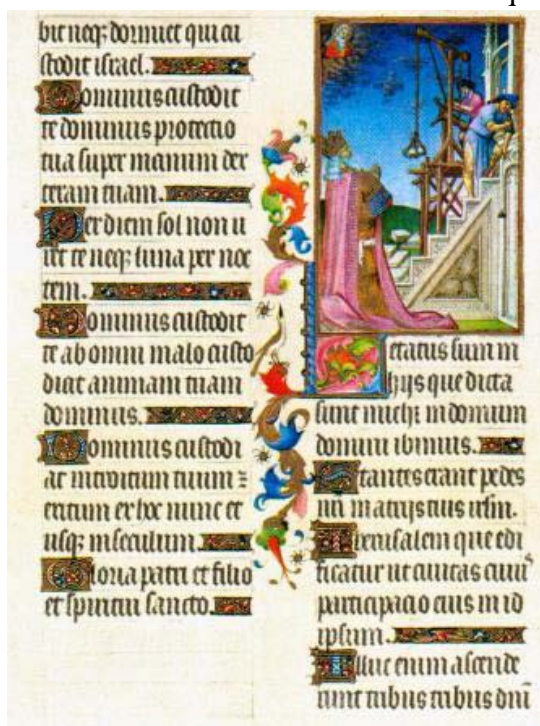 bit neq; dormiet qui cu
stodit israel.
Dominus custodit
te dominus protectio
tua super manum dex
teram tuam.
Per diem sol non u
ret te neq; luna per noc
tem.
Dominus custodit
te ab omni malo custo
diat animam tuam
dominus.
Dominus custodi
at introitum tuum z
exitum ex hoc nunc et
usq; in seculum.
Gloria patri et filio
et spiritui sancto.
Letatus sum in
hijs que dicta
sunt michi in domum
domini ibimus.
Stantes erant pedes
nri in atrijs tuis irlm.
Iherusalem que edi
ficatur ut ciuitas cuius
participacio eius in id
ipsum.
Illuc enim ascende
runt tribus tribus dni